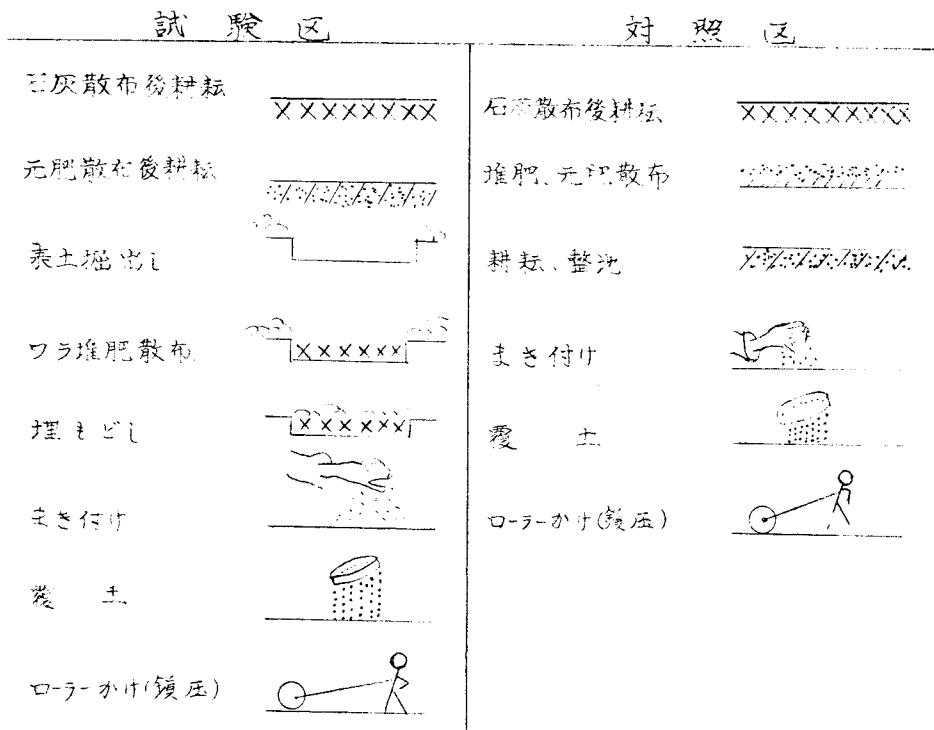 試験区
石灰散布後耕耘
元肥散布後耕耘
表土堀出し
ワラ堆肥散布
埋もどし
まき付け
覆土
ローラーかけ(鎮圧)
対照区
石灰散布後耕耘
堆肥、元肥散布
耕耘、整地
まき付け
覆土
ローラーかけ(鎮圧)